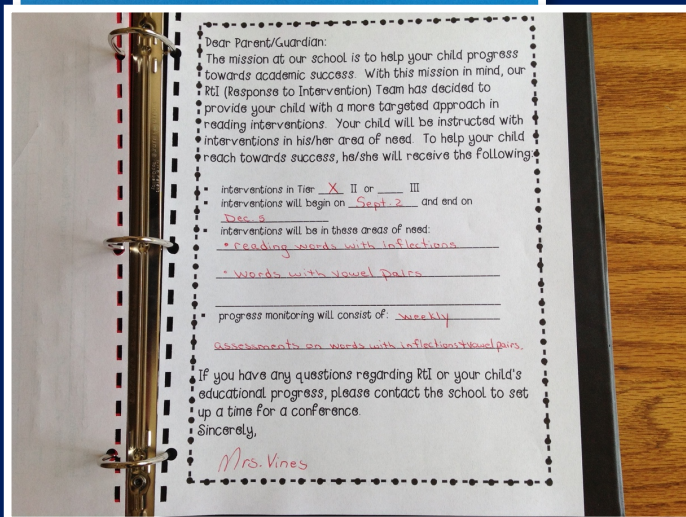 Dear Parent/Guardian:
The mission at our school is to help your child progress
towards academic success. With this mission in mind, our
RtI (Response to Intervention) Team has decided to
provide your child with a more targeted approach in
reading interventions. Your child will be instructed with
interventions in his/her area of need. To help your child
reach towards success, he/she will receive the following:
interventions in Tier X II or ____ III
interventions will begin on Sept. 2 and end on
Dec. 5
interventions will be in these areas of need:
• reading words with inflections
• words with vowel pairs
progress monitoring will consist of: weekly
assessments on words with inflections + vowel pairs.
If you have any questions regarding RtI or your child's
educational progress, please contact the school to set
up a time for a conference.
Sincerely,
Mrs. Vines